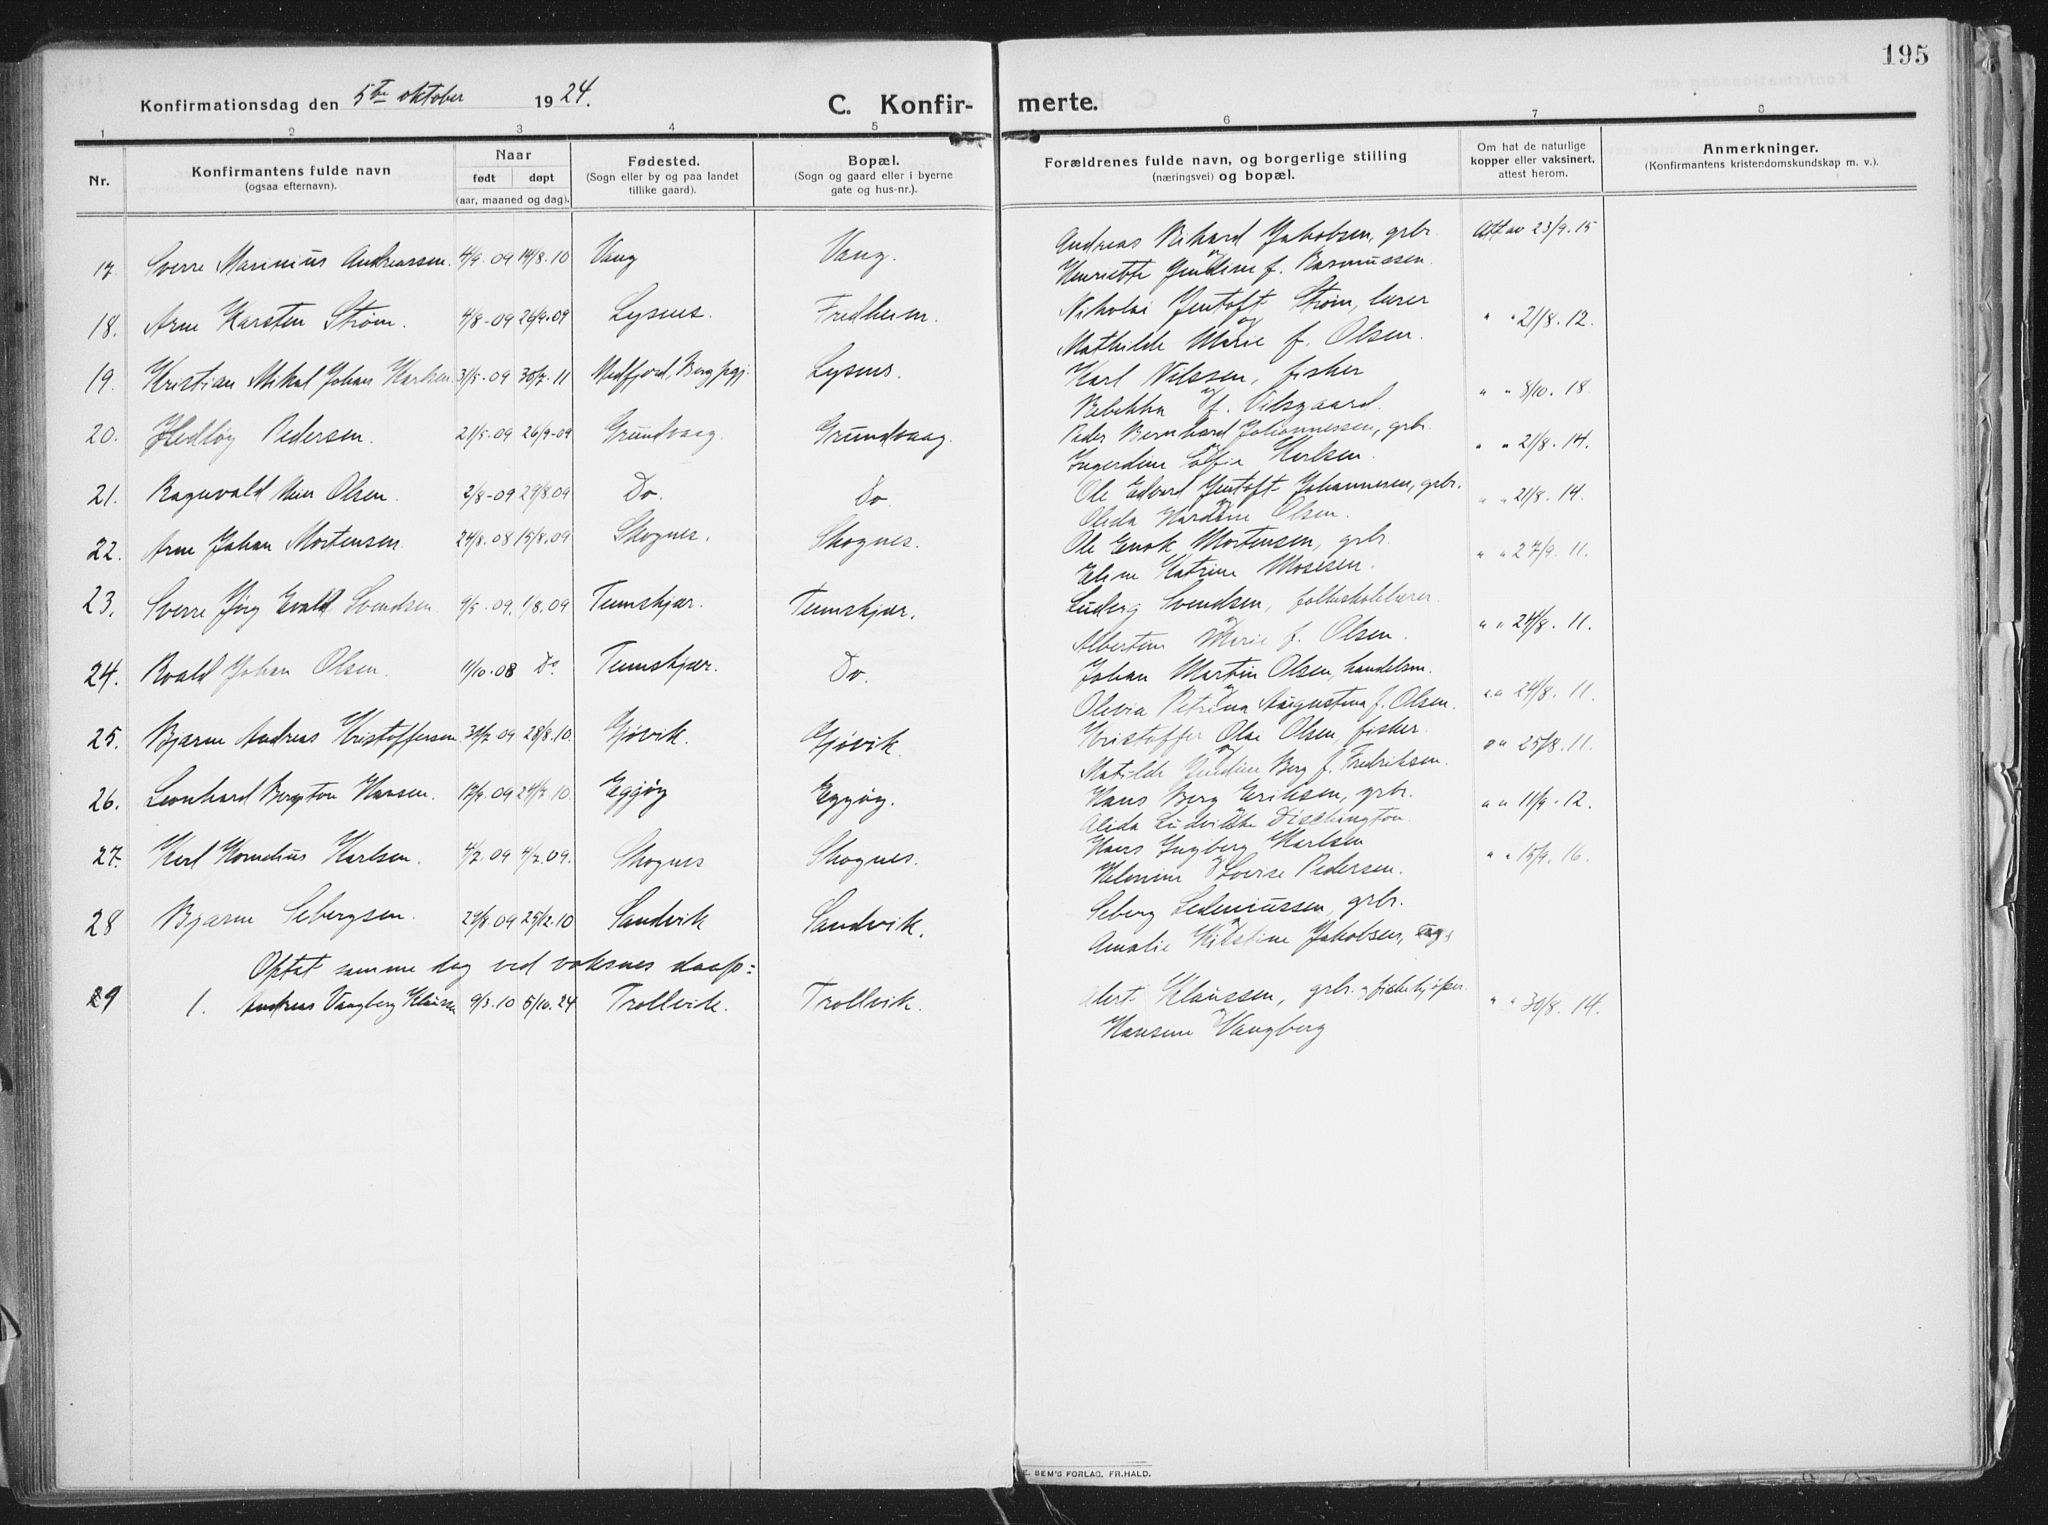 195
Konfirmationsdag den 5te oktober 1924. C. Konfir- merte.
1 2 3 4 5 6 7 8
Nr. Konfirmantens fulde navn (ogsaa efternavn). Naar født døpt (aar, maaned og dag). Fødested. (Sogn eller by og paa landet tillike gaard). Bopæl. (Sogn og gaard eller i byerne gate og hus-nr.). Forældrenes fulde navn, og borgerlige stilling (næringsvei) og bopæl. Om hat de naturlige kopper eller vaksinert, attest herom. Anmerkninger. (Konfirmantens kristendomskundskap m. v.).
17. Sverre Marinius Andreassen 4/9-09 14/8.10 Vang Vang. Andreas Rikard Jakobsen, grbr. Att av 23/9.15
og Henriette f. Rasmussen.
18. Arne Karsten Strøm. 4/8-09 26/9-09 Lysnes. Fredheim. Nikolai Jentoft Strøm, lærer " " 21/8.12.
og Mathilde Marie f. Olsen.
19. Kristian Mikal Johan Karlsen 31/5-09 30/7.11 Medfjord, Berg pgj. Lysnes. Karl Nilssen, fisker " " 8/10.18
og Rebekka f. Vilsgaard.
20. Hedløg Pedersen. 21/5-09 26/9-09 Grundvaag. Grundvaag. Peder Bernhard Johannessen, grbr. " " 21/8.14.
Ingerdine Sofie Karlsen.
21. Ragnvald Olsen. 2/8-09 29/8.09 Do. Do. Ole Edvard Jentoft Johannesen, grbr. " " 21/8.14.
Olida Olsen.
22. Arne Johan Mortensen 24/8.08 15/8.09 Skognes. Skognes. Ole Enok Mortensen, grbr. " " 27/9.11.
Katrine Mosesen.
23. Sverre Evald Svendsen 9/5-09. 1/8.09 Temskjær. Temskjær. Ludvig Svendsen, folkeskolelærer " " 24/8.11.
og Marie f. Olsen.
24. Roald Johan Olsen. 11/10-08 Do. Temskjær. Do. Johan Martin Olsen, handelsm. " " 24/8.11.
Olevia Petrina Augustina f. Olsen.
25. Bjarne Andreas Kristoffersen 31/7.09 28/8.10. Gjøvik. Gjøvik. Kristoffer Olai Olsen, fisker. " " 25/8.11.
og Matilde Berg f. Fredriksen.
26. Leonhard Hansen. 17/9.09 24/7.10. Eggøy Eggøy. Hans Berg Eriksen, grbr. " " 11/9.12.
Alida Dischington.
27. Karl Kornelius Karlsen. 4/2.09 4/7.09. Skognes Skognes. Hans Ingberg Karlsen " " 15/9.16.
og Lovise Pedersen.
28 Bjarne Sebergsen. 29/8.09 25/12.10 Sandvik Sandvik. Seberg Sedeniussen, grbr.
Amalie Kirstine Jakobsen,
Optat samme dag ved voksnes daap:
29 1. Andreas Vangberg Klaussen 9/3.10 5/10.24 Trollvik. Trollvik. Klaussen, grbr. " " 30/8.14.
og Hansine Vangberg
E. SEM'S FORLAG, FR.HALD.